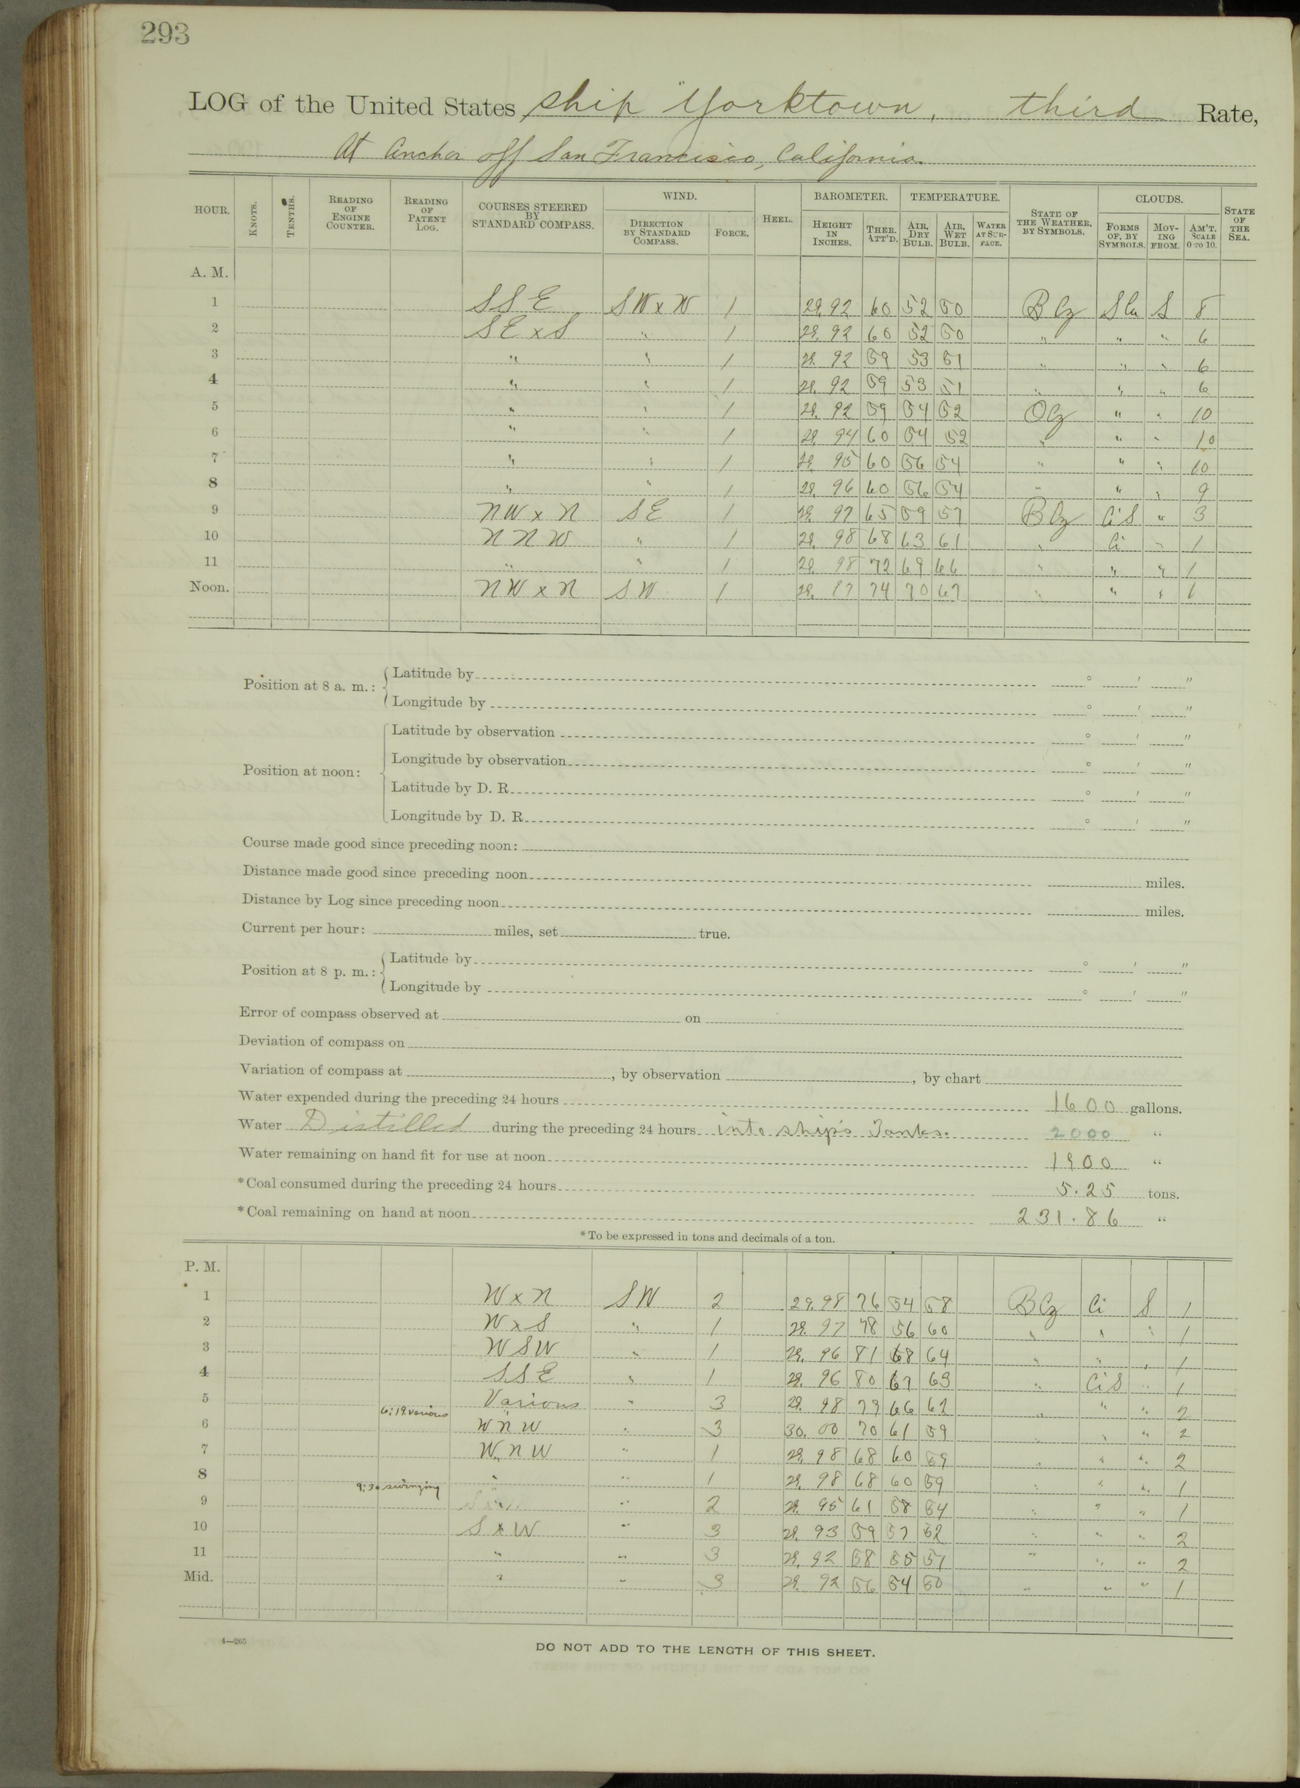 293
LOG of the United States ship "Yorktown, third Rate,
At Anchor off San Francisco, California.
HOUR. KNOTS. TENTHS. READING OF ENGINE COUNTER. READING OF PATENT LOG. COURSES STEERED BY STANDARD COMPASS. WIND. DIRECTION BY STANDARD COMPASS. FORCE. HEEL. BAROMETER. HEIGHT IN INCHES. THER. ATT'D. TEMPERATURE. AIR, DRY BULB. AIR, WET BULB. WATER AT SURFACE. STATE OF THE WEATHER, BY SYMBOLS. CLOUDS. FORMS OF, BY SYMBOLS. MOVING FROM. AM'T. SCALE 0 TO 10. STATE OF THE SEA.
A. M.
1 SSE SW x W 1 29.92 60 52 50 B Cz S 8
2 SE x S " 1 29.92 60 52 50 " " " 6
3 " " 1 29.92 59 53 51 " " " 6
4 " " 1 29.92 59 53 51 " " " 6
5 " " 1 29.92 59 54 52 O Cz " " 10
6 " " 1 29.94 60 54 52 " " " 10
7 " " 1 29.95 60 56 54 " " " 10
8 " " 1 29.96 60 56 54 " " " 9
9 NW x N SE 1 29.97 65 59 57 B Cz Ci S " 3
10 NNW " 1 29.98 68 63 61 " Ci " 1
11 " " 1 29.98 72 69 66 " " " 1
Noon. NW x N SW 1 29. 74 70 67 " " " 1
Position at 8 a. m.: Latitude by ° ' "
Longitude by ° ' "
Position at noon: Latitude by observation ° ' "
Longitude by observation ° ' "
Latitude by D. R. ° ' "
Longitude by D. R. ° ' "
Course made good since preceding noon:
Distance made good since preceding noon miles.
Distance by Log since preceding noon miles.
Current per hour: miles, set true.
Position at 8 p. m.: Latitude by ° ' "
Longitude by ° ' "
Error of compass observed at on
Deviation of compass on
Variation of compass at , by observation , by chart
Water expended during the preceding 24 hours 1600 gallons.
Water Distilled during the preceding 24 hours into ship's Tanks. 2000 "
Water remaining on hand fit for use at noon 1900 "
*Coal consumed during the preceding 24 hours 5.25 tons.
*Coal remaining on hand at noon 231.86 "
*To be expressed in tons and decimals of a ton.
P. M.
1 W x N SW 2 29.98 76 54 58 B Cz Ci S 1
2 W x S " 1 29.97 78 56 60 " " " 1
3 WSW " 1 29.96 81 68 64 " " " 1
4 SSE " 1 29.96 80 67 63 " Ci S " 1
5 Various " 3 29.98 73 66 62 " " " 2
6:19 various
6 WNW " 3 30.00 70 61 59 " " " 2
7 WNW " 1 29.98 68 60 59 " " " 2
8 " " 1 29.98 68 60 59 " " " 1
9:30 swinging
9 " " 2 29.95 61 58 54 " " " 1
10 S x W " 3 29.93 59 57 52 " " " 2
11 " " 3 29.92 58 55 51 " " " 2
Mid. " " 3 29.92 56 54 50 " " " 1
4—265
DO NOT ADD TO THE LENGTH OF THIS SHEET.